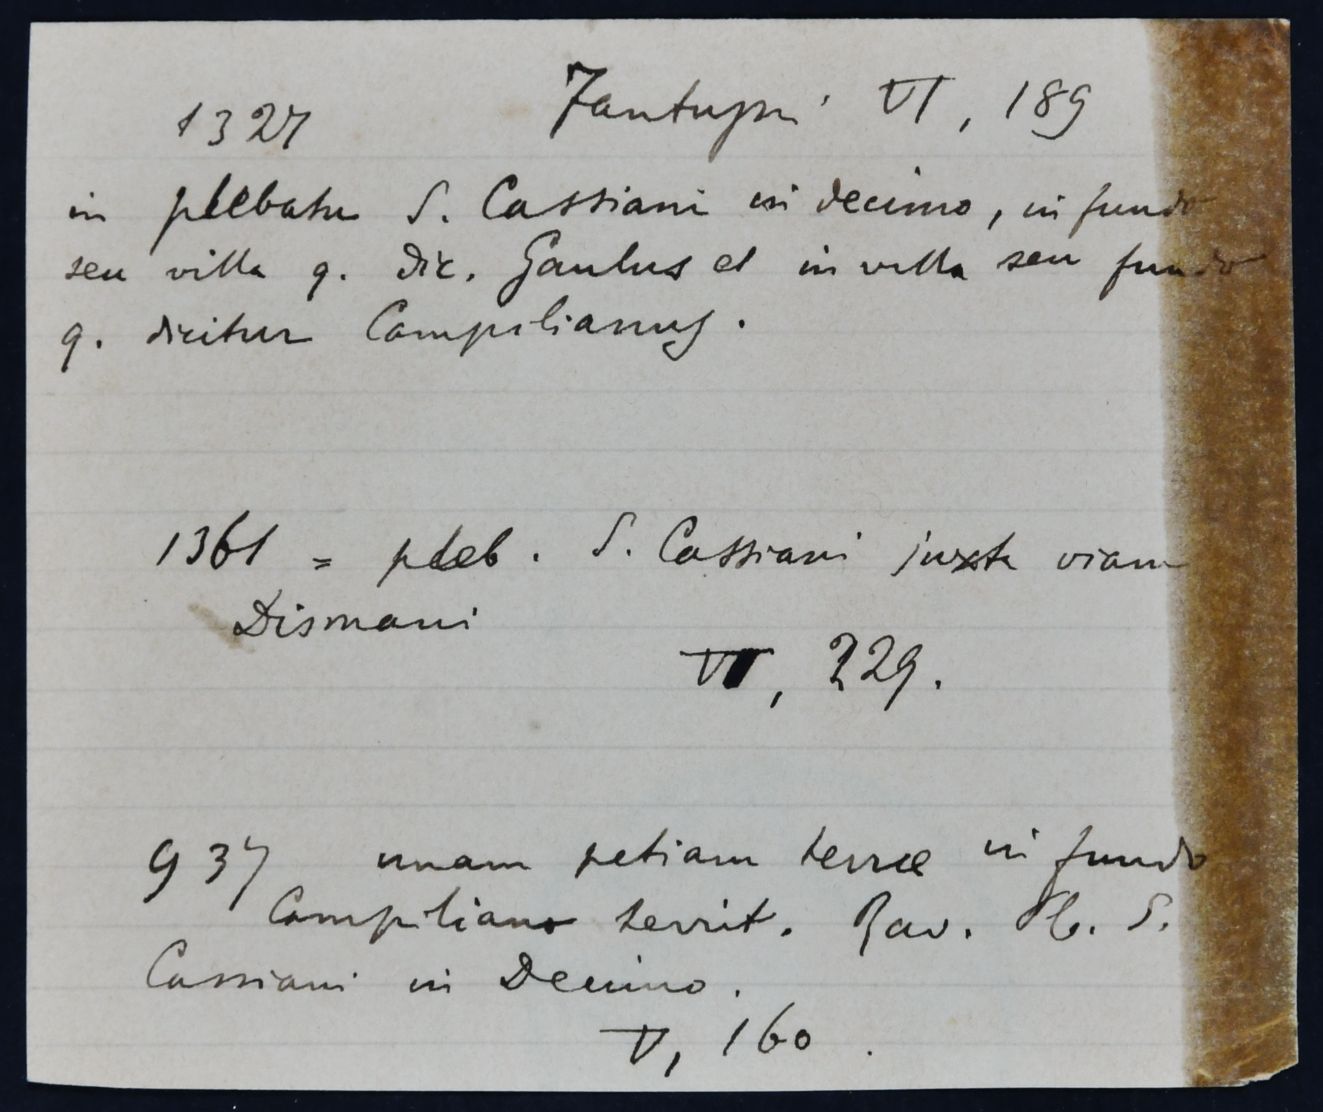 1327 Fantuzzi VI, 189
in plebatu S. Cassiani in decimo, in fundo
seu villa q. dic. Gaulus et in villa seu fundo
q. dicitur Compilianus.
1361 = pleb. S. Cassiani juxta viam
Dismani
VI, 229.
937 unam petiam terræ in fundo
Compiliano territ. Rav. Pleb. S.
Cassiani in Decimo.
V, 160.